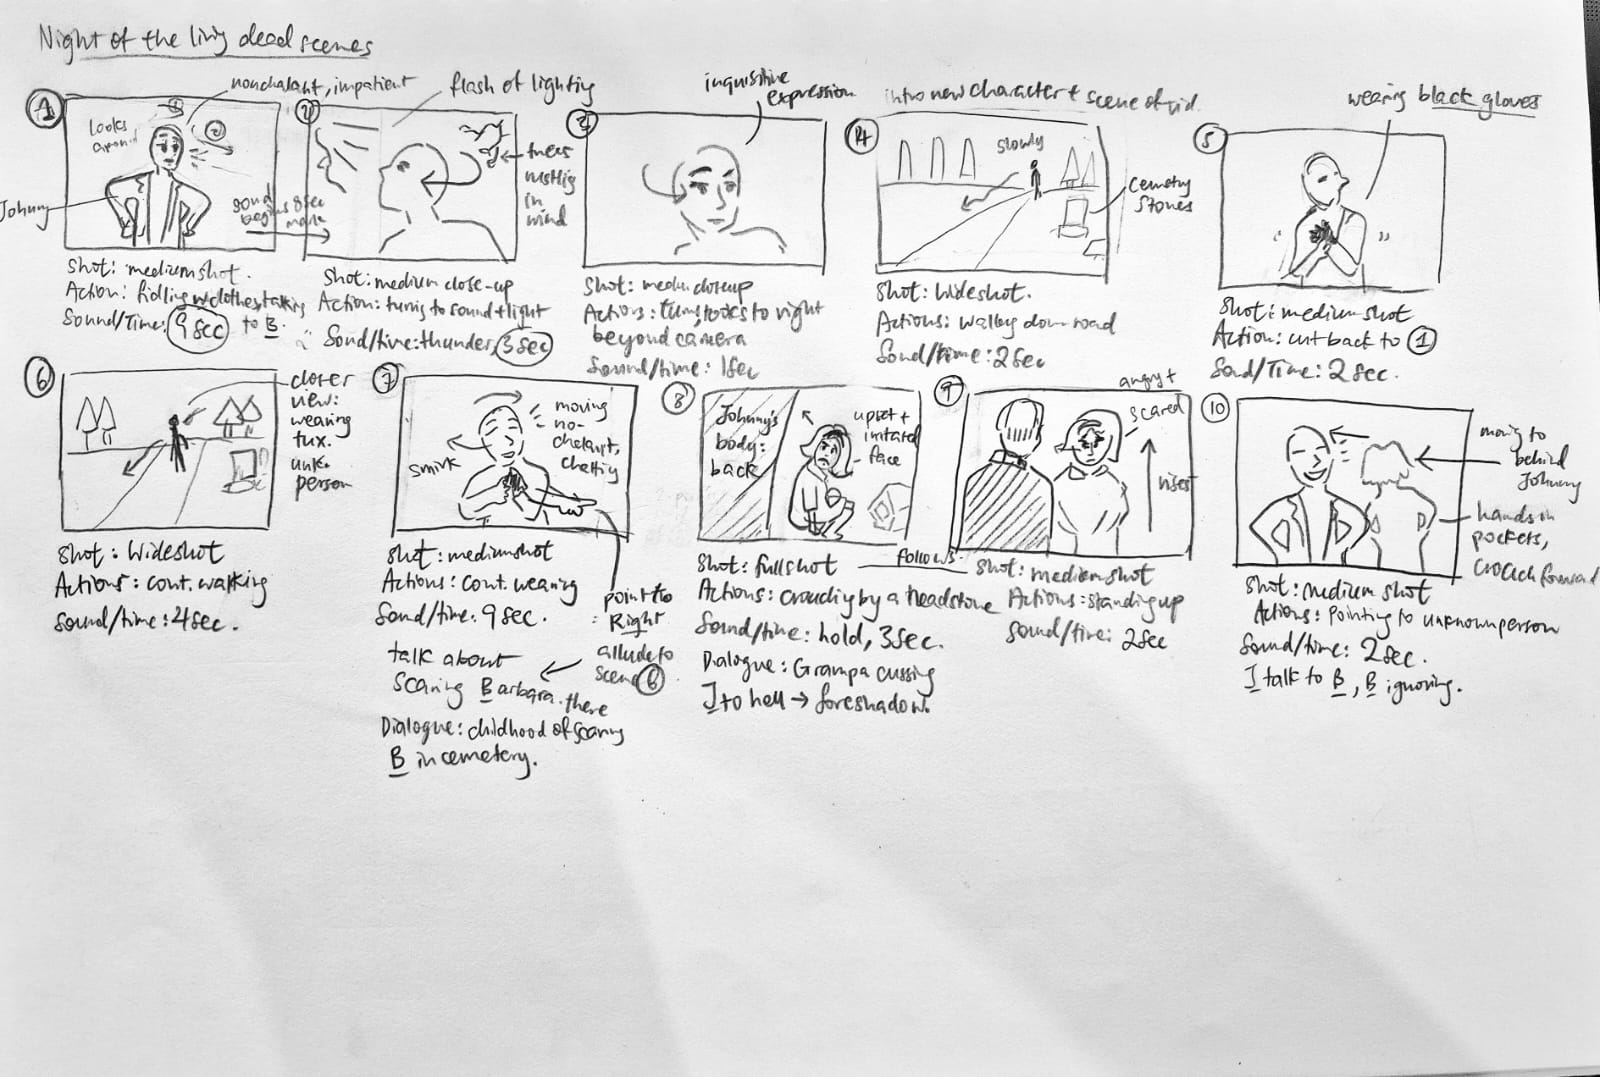 Night of the living dead scenes
1
nonchalant, impatient
looks
around
1
2
Johnny
sound
begins
Shot: medium shot.
Action: fidling w clothes, talking
Sound/Time: 9 sec to B.
2
flash of lighting
trees
rustling
in
wind
Shot: medium close-up
Action: turns to sound + light
Sound/time: thunder, 3 sec
3
inquisitive
expression
Shot: medium closeup
Actions: turns, looks to right
beyond camera
Sound/time: 1 sec
4
intro new character + scene of vid.
slowly
cemetery
stones
Shot: Wideshot.
Actions: walking down road
Sound/time: 2 sec
5
wearing black gloves
Shot: medium shot
Action: cut back to 1
Sound/Time: 2 sec.
6
closer
view:
wearing
tux.
unk.
person
Shot: Wideshot
Actions: cont. walking
Sound/time: 4 sec.
7
smirk
moving
no-
chalant,
chatting
Shot: medium shot
Actions: cont. wearing
Sound/time: 9 sec.
point to
Right
allude to
scene 6
talk about
scaring Barbara there
Dialogue: childhood of scaring
B in cemetery.
8
Johnny's
body:
back
upset +
irritated
face
Shot: full shot
Actions: crouching by a headstone
Sound/time: hold, 3 sec.
Dialogue: Grampa cussing
J to hell → foreshadow.
follows
9
angry +
scared
rises
Shot: medium shot
Actions: standing up
Sound/time: 2 sec
10
moving to
behind
Johnny
hands in
pockets,
crouch forward
Shot: medium shot
Actions: pointing to unknown person
Sound/time: 2 sec.
J talk to B, B ignoring.